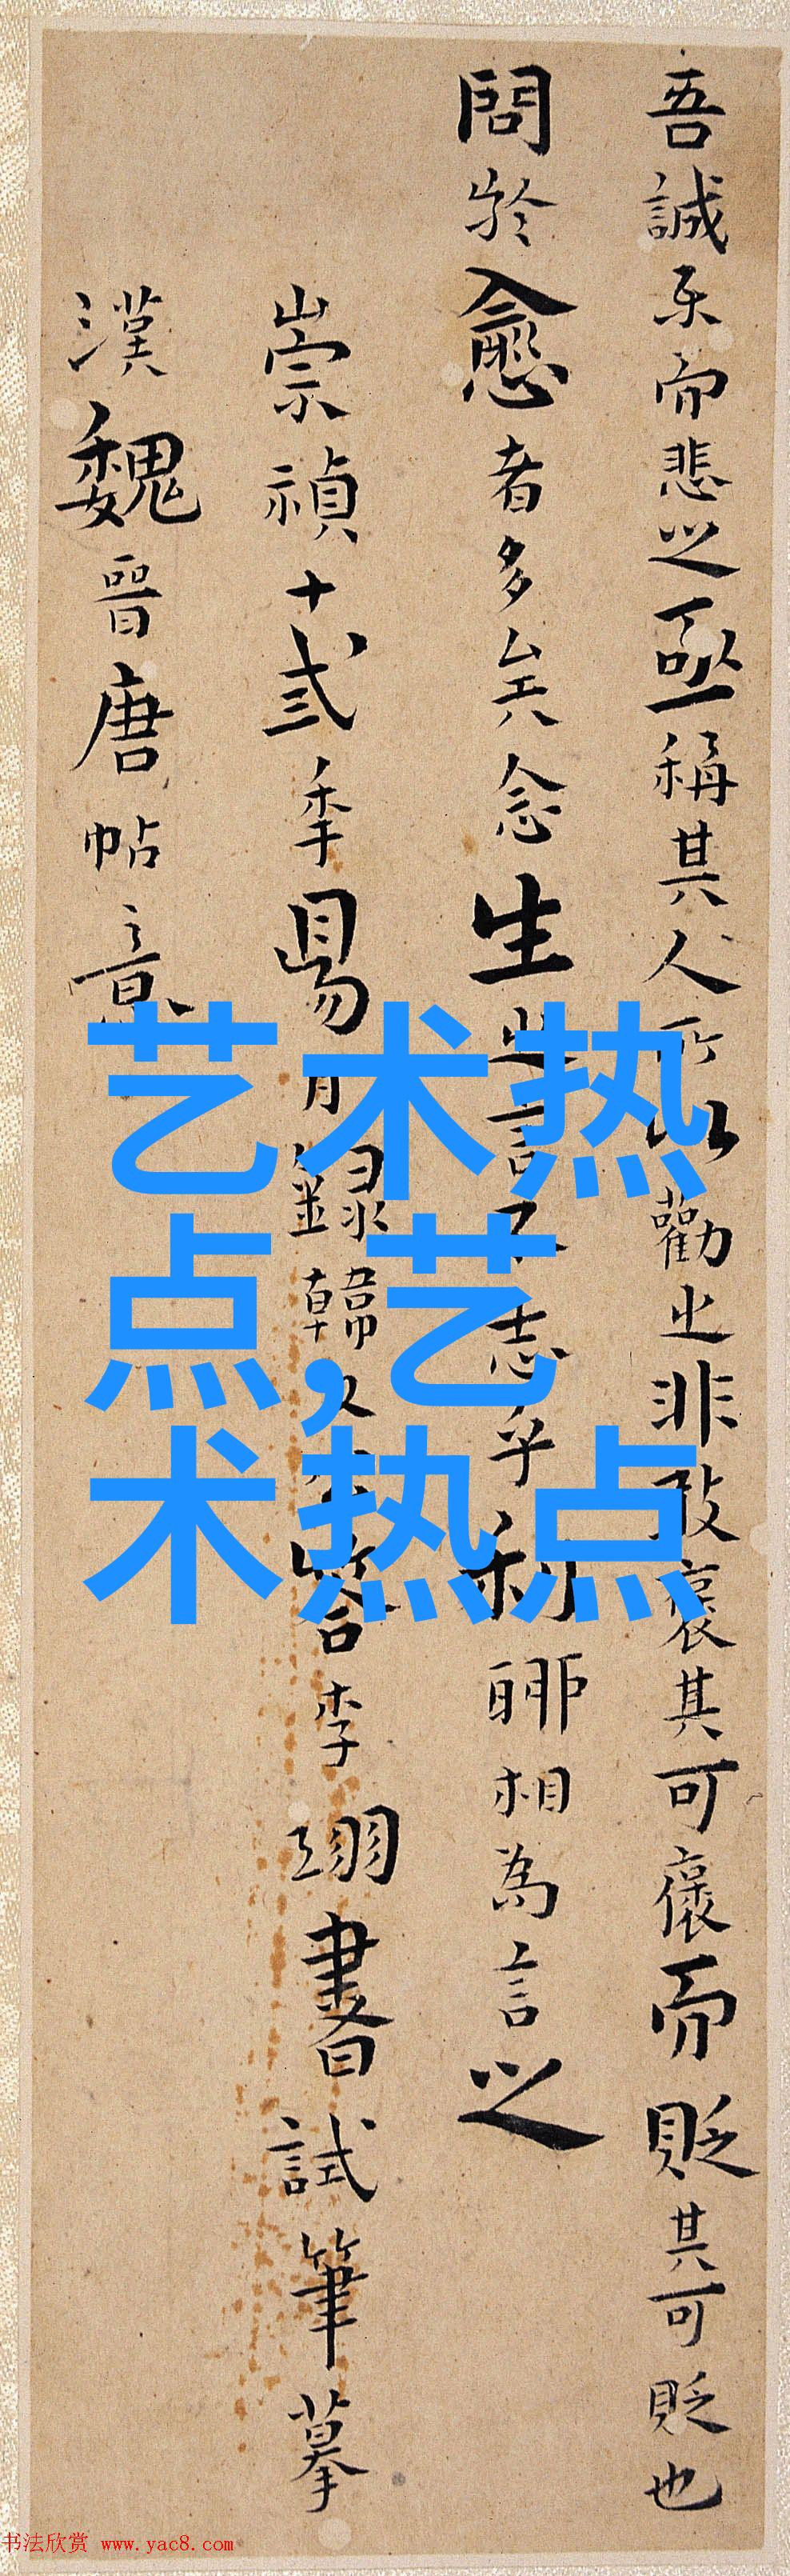 吾誠乐而悲之亟稱其人所以勸之非敢褒其可褒而貶其可貶也
問於愈者多矣念生之言不志乎利聊相為言之
崇禎十弎秊昜月錄韓文公答李翊書試筆摹
漢魏晉唐帖意
艺术热
点,艺
术热点
书法欣赏 www.yac8.com